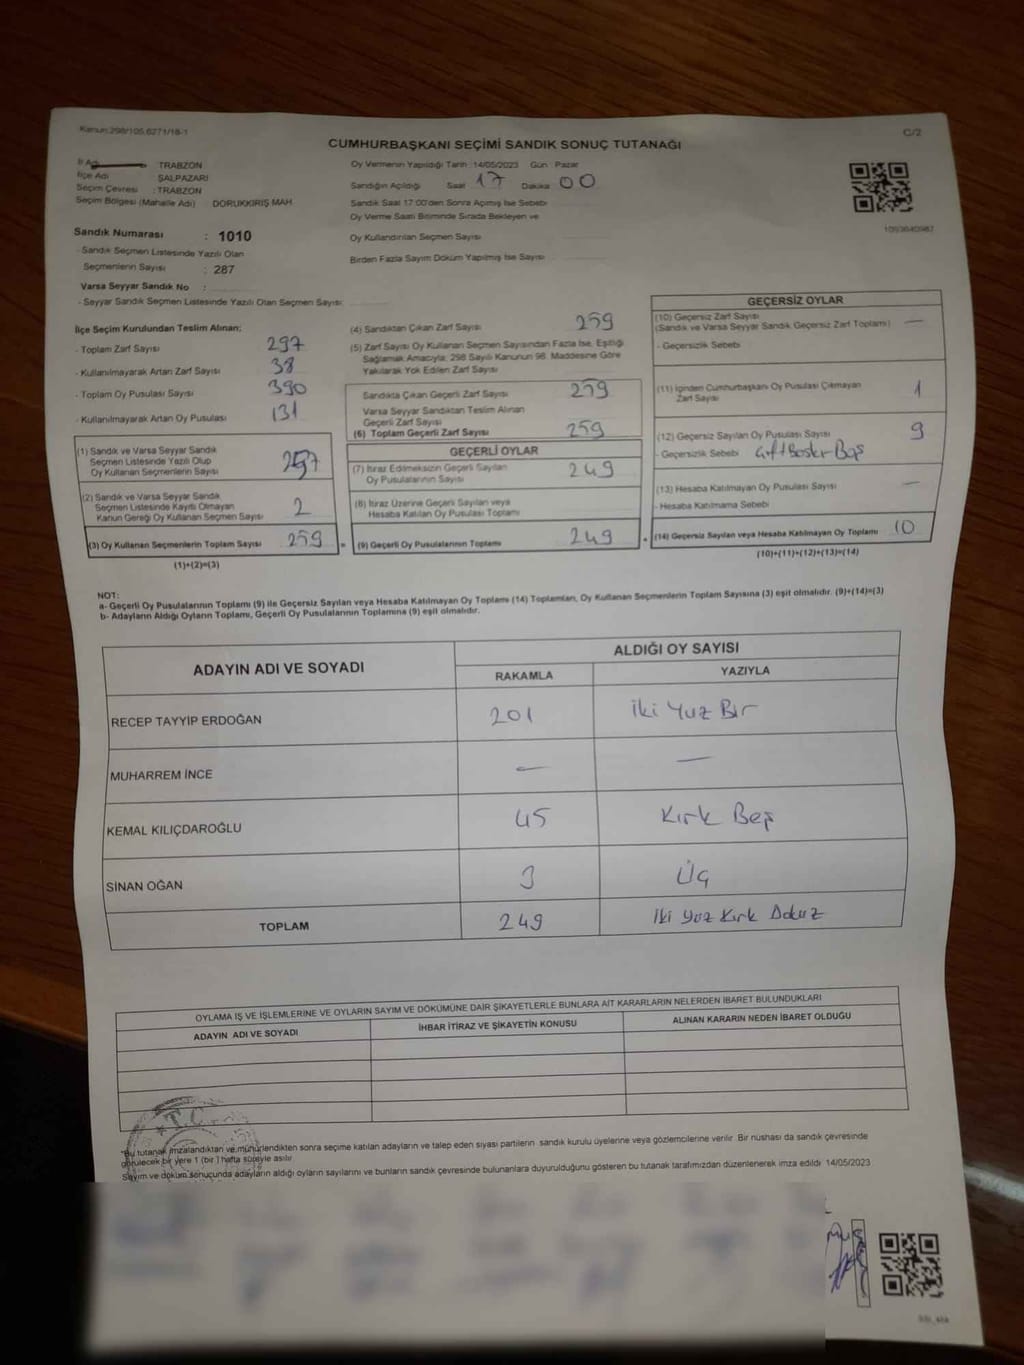 Kanun:298/105,6271/18-1
C/2
CUMHURBAŞKANI SEÇİMİ SANDIK SONUÇ TUTANAĞI
İl Adı TRABZON
İlçe Adı ŞALPAZARI
Seçim Çevresi : TRABZON
Seçim Bölgesi (Mahalle Adı) : DORUKKİRİŞ MAH.
Oy Vermenin Yapıldığı Tarih : 14/05/2023 Gün : Pazar
Sandığın Açıldığı Saat 17 Dakika 00
Sandık Saat 17:00'den Sonra Açılmış İse Sebebi
Oy Verme Saati Bitiminde Sırada Bekleyen ve
Oy Kullandırılan Seçmen Sayısı
Birden Fazla Sayım Döküm Yapılmış İse Sayısı
Sandık Numarası : 1010
- Sandık Seçmen Listesinde Yazılı Olan
Seçmenlerin Sayısı : 287
Varsa Seyyar Sandık No :
- Seyyar Sandık Seçmen Listesinde Yazılı Olan Seçmen Sayısı:
İlçe Seçim Kurulundan Teslim Alınan:
- Toplam Zarf Sayısı 297
- Kullanılmayarak Artan Zarf Sayısı 38
- Toplam Oy Pusulası Sayısı 390
- Kullanılmayarak Artan Oy Pusulası 131
(1) Sandık ve Varsa Seyyar Sandık
Seçmen Listesinde Yazılı Olup
Oy Kullanan Seçmenlerin Sayısı
(2) Sandık ve Varsa Seyyar Sandık
Seçmen Listesinde Kayıtlı Olmayan
Kanun Gereği Oy Kullanan Seçmen Sayısı 2
(3) Oy Kullanan Seçmenlerin Toplam Sayısı 259 =
(1)+(2)=(3)
(4) Sandıktan Çıkan Zarf Sayısı 259
(5) Zarf Sayısı Oy Kullanan Seçmen Sayısından Fazla İse, Eşitliği
Sağlamak Amacıyla; 298 Sayılı Kanunun 98. Maddesine Göre
Yakılarak Yok Edilen Zarf Sayısı
Sandıkta Çıkan Geçerli Zarf Sayısı 259
Varsa Seyyar Sandıktan Teslim Alınan
Geçerli Zarf Sayısı
(6) Toplam Geçerli Zarf Sayısı 259
GEÇERLİ OYLAR
(7) İtiraz Edilmeksizin Geçerli Sayılan
Oy Pusulalarının Sayısı 249
(8) İtiraz Üzerine Geçerli Sayılan veya
Hesaba Katılan Oy Pusulası Toplamı
(9) Geçerli Oy Pusulalarının Toplamı 249 +
GEÇERSİZ OYLAR
(10) Geçersiz Zarf Sayısı
(Sandık ve Varsa Seyyar Sandık Geçersiz Zarf Toplamı) —
- Geçersizlik Sebebi
(11) İçinden Cumhurbaşkanı Oy Pusulası Çıkmayan
Zarf Sayısı 1
(12) Geçersiz Sayılan Oy Pusulası Sayısı 9
- Geçersizlik Sebebi
(13) Hesaba Katılmayan Oy Pusulası Sayısı —
- Hesaba Katılmama Sebebi
(14) Geçersiz Sayılan veya Hesaba Katılmayan Oy Toplamı 10
(10)+(11)+(12)+(13)=(14)
NOT:
a- Geçerli Oy Pusulalarının Toplamı (9) ile Geçersiz Sayılan veya Hesaba Katılmayan Oy Toplamı (14) Toplamları, Oy Kullanan Seçmenlerin Toplam Sayısına (3) eşit olmalıdır. (9)+(14)=(3)
b- Adayların Aldığı Oyların Toplamı, Geçerli Oy Pusulalarının Toplamına (9) eşit olmalıdır.
ADAYIN ADI VE SOYADI
ALDIĞI OY SAYISI
RAKAMLA YAZIYLA
RECEP TAYYİP ERDOĞAN 201 İki Yuz Bir
MUHARREM İNCE — —
KEMAL KILIÇDAROĞLU 45 Kırk Beş
SİNAN OĞAN 3 Üç
TOPLAM 249 İki Yuz Kırk Dokuz
OYLAMA İŞ VE İŞLEMLERİNE VE OYLARIN SAYIM VE DÖKÜMÜNE DAİR ŞİKAYETLERLE BUNLARA AİT KARARLARIN NELERDEN İBARET BULUNDUKLARI
ADAYIN ADI VE SOYADI İHBAR İTİRAZ VE ŞİKAYETİN KONUSU ALINAN KARARIN NEDEN İBARET OLDUĞU
T.C.
*Bu tutanak imzalandıktan ve mühürlendikten sonra seçime katılan adayların ve talep eden siyasi partilerin sandık kurulu üyelerine veya gözlemcilerine verilir. Bir nüshası da sandık çevresinde
görülecek bir yere 1 (bir) hafta süreyle asılır.
Sayım ve döküm sonucunda adayların aldığı oyların sayılarını ve bunların sandık çevresinde bulunanlara duyurulduğunu gösteren bu tutanak tarafımızdan düzenlenerek imza edildi. 14/05/2023